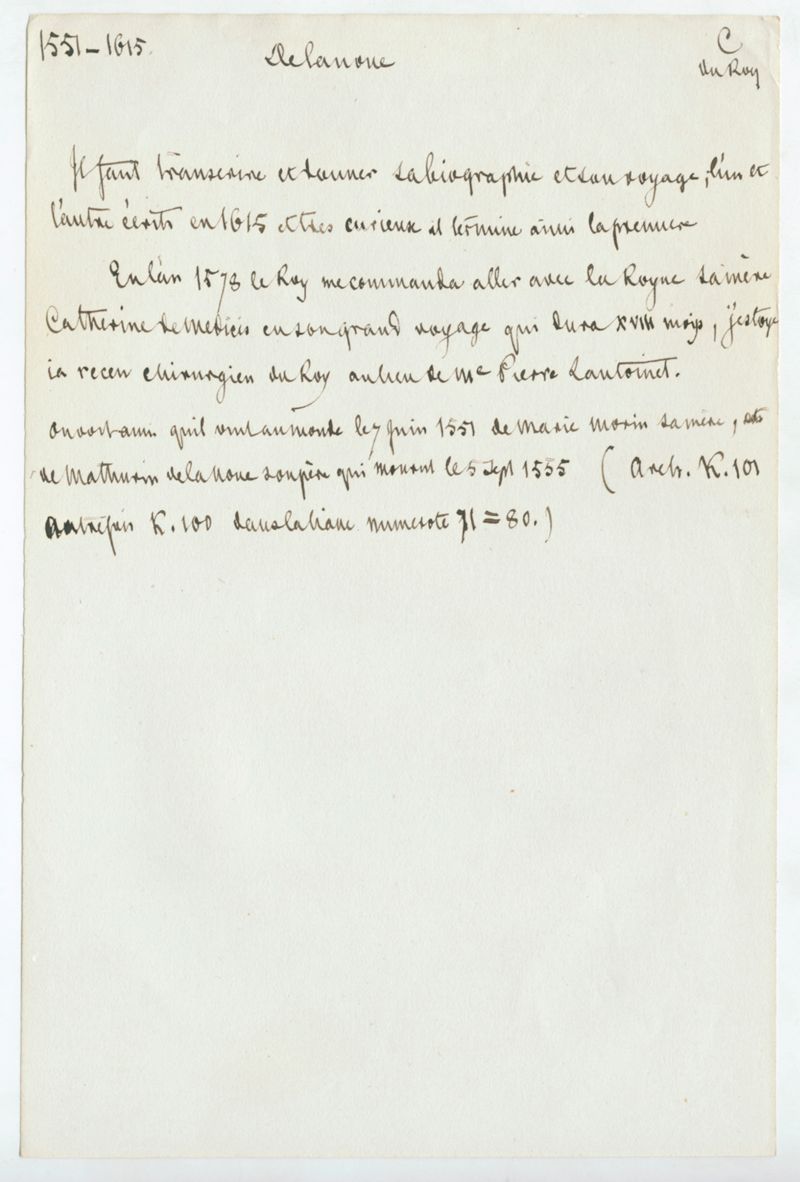 1551 – 1615.
Delanoue
C
du Roy
Il faut transcrire et donner sa biographie et son voyage, l'un et
l'autre écrits en 1615 et très curieux il termine ainsi la premiere
En l'an 1578 le Roy me commanda aller avec la Royne sa mère
Catherine de Medicis en son grand voyage qui dura XVIII moys, j'estoye
ia receu chirurgien du Roy au lieu de Me Pierre Lantoinet.
on voit quil vint au monde le 7 Juin 1551 de Marie Morin sa mère,
de Mathurin de la Noue son père qui mourut le 5 Sept 1555 (Arch. K. 101
autrefois K. 100 dans la liasse numerote 71 = 80.)